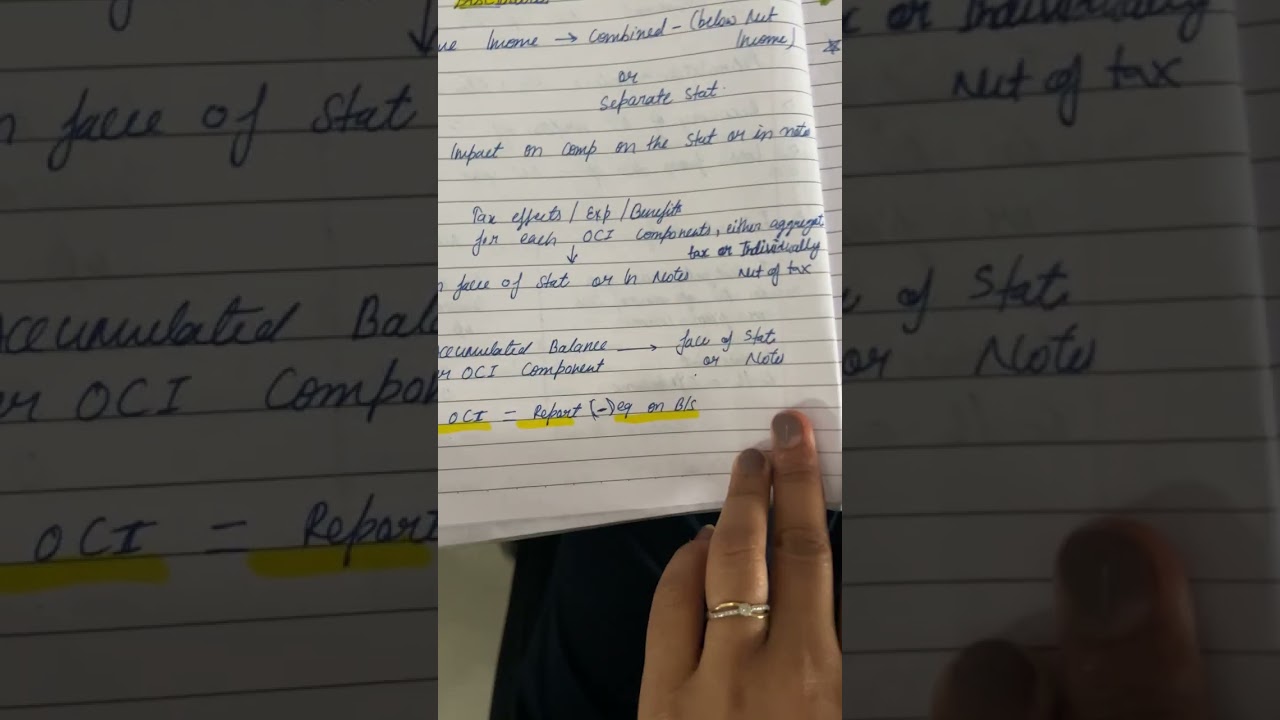 ue Income → Combined - (below Net
Income)
or
Separate Stat.
Impact on Comp on the Stat or in notes
Tax effects / Exp / Benefits
for each OCI components, either aggregat
↓ tax or Individually
n face of Stat or In Notes Net of tax
ccumulated Balance → face of Stat
er OCI Component or Notes
OCI = Report (-) eq on B/S